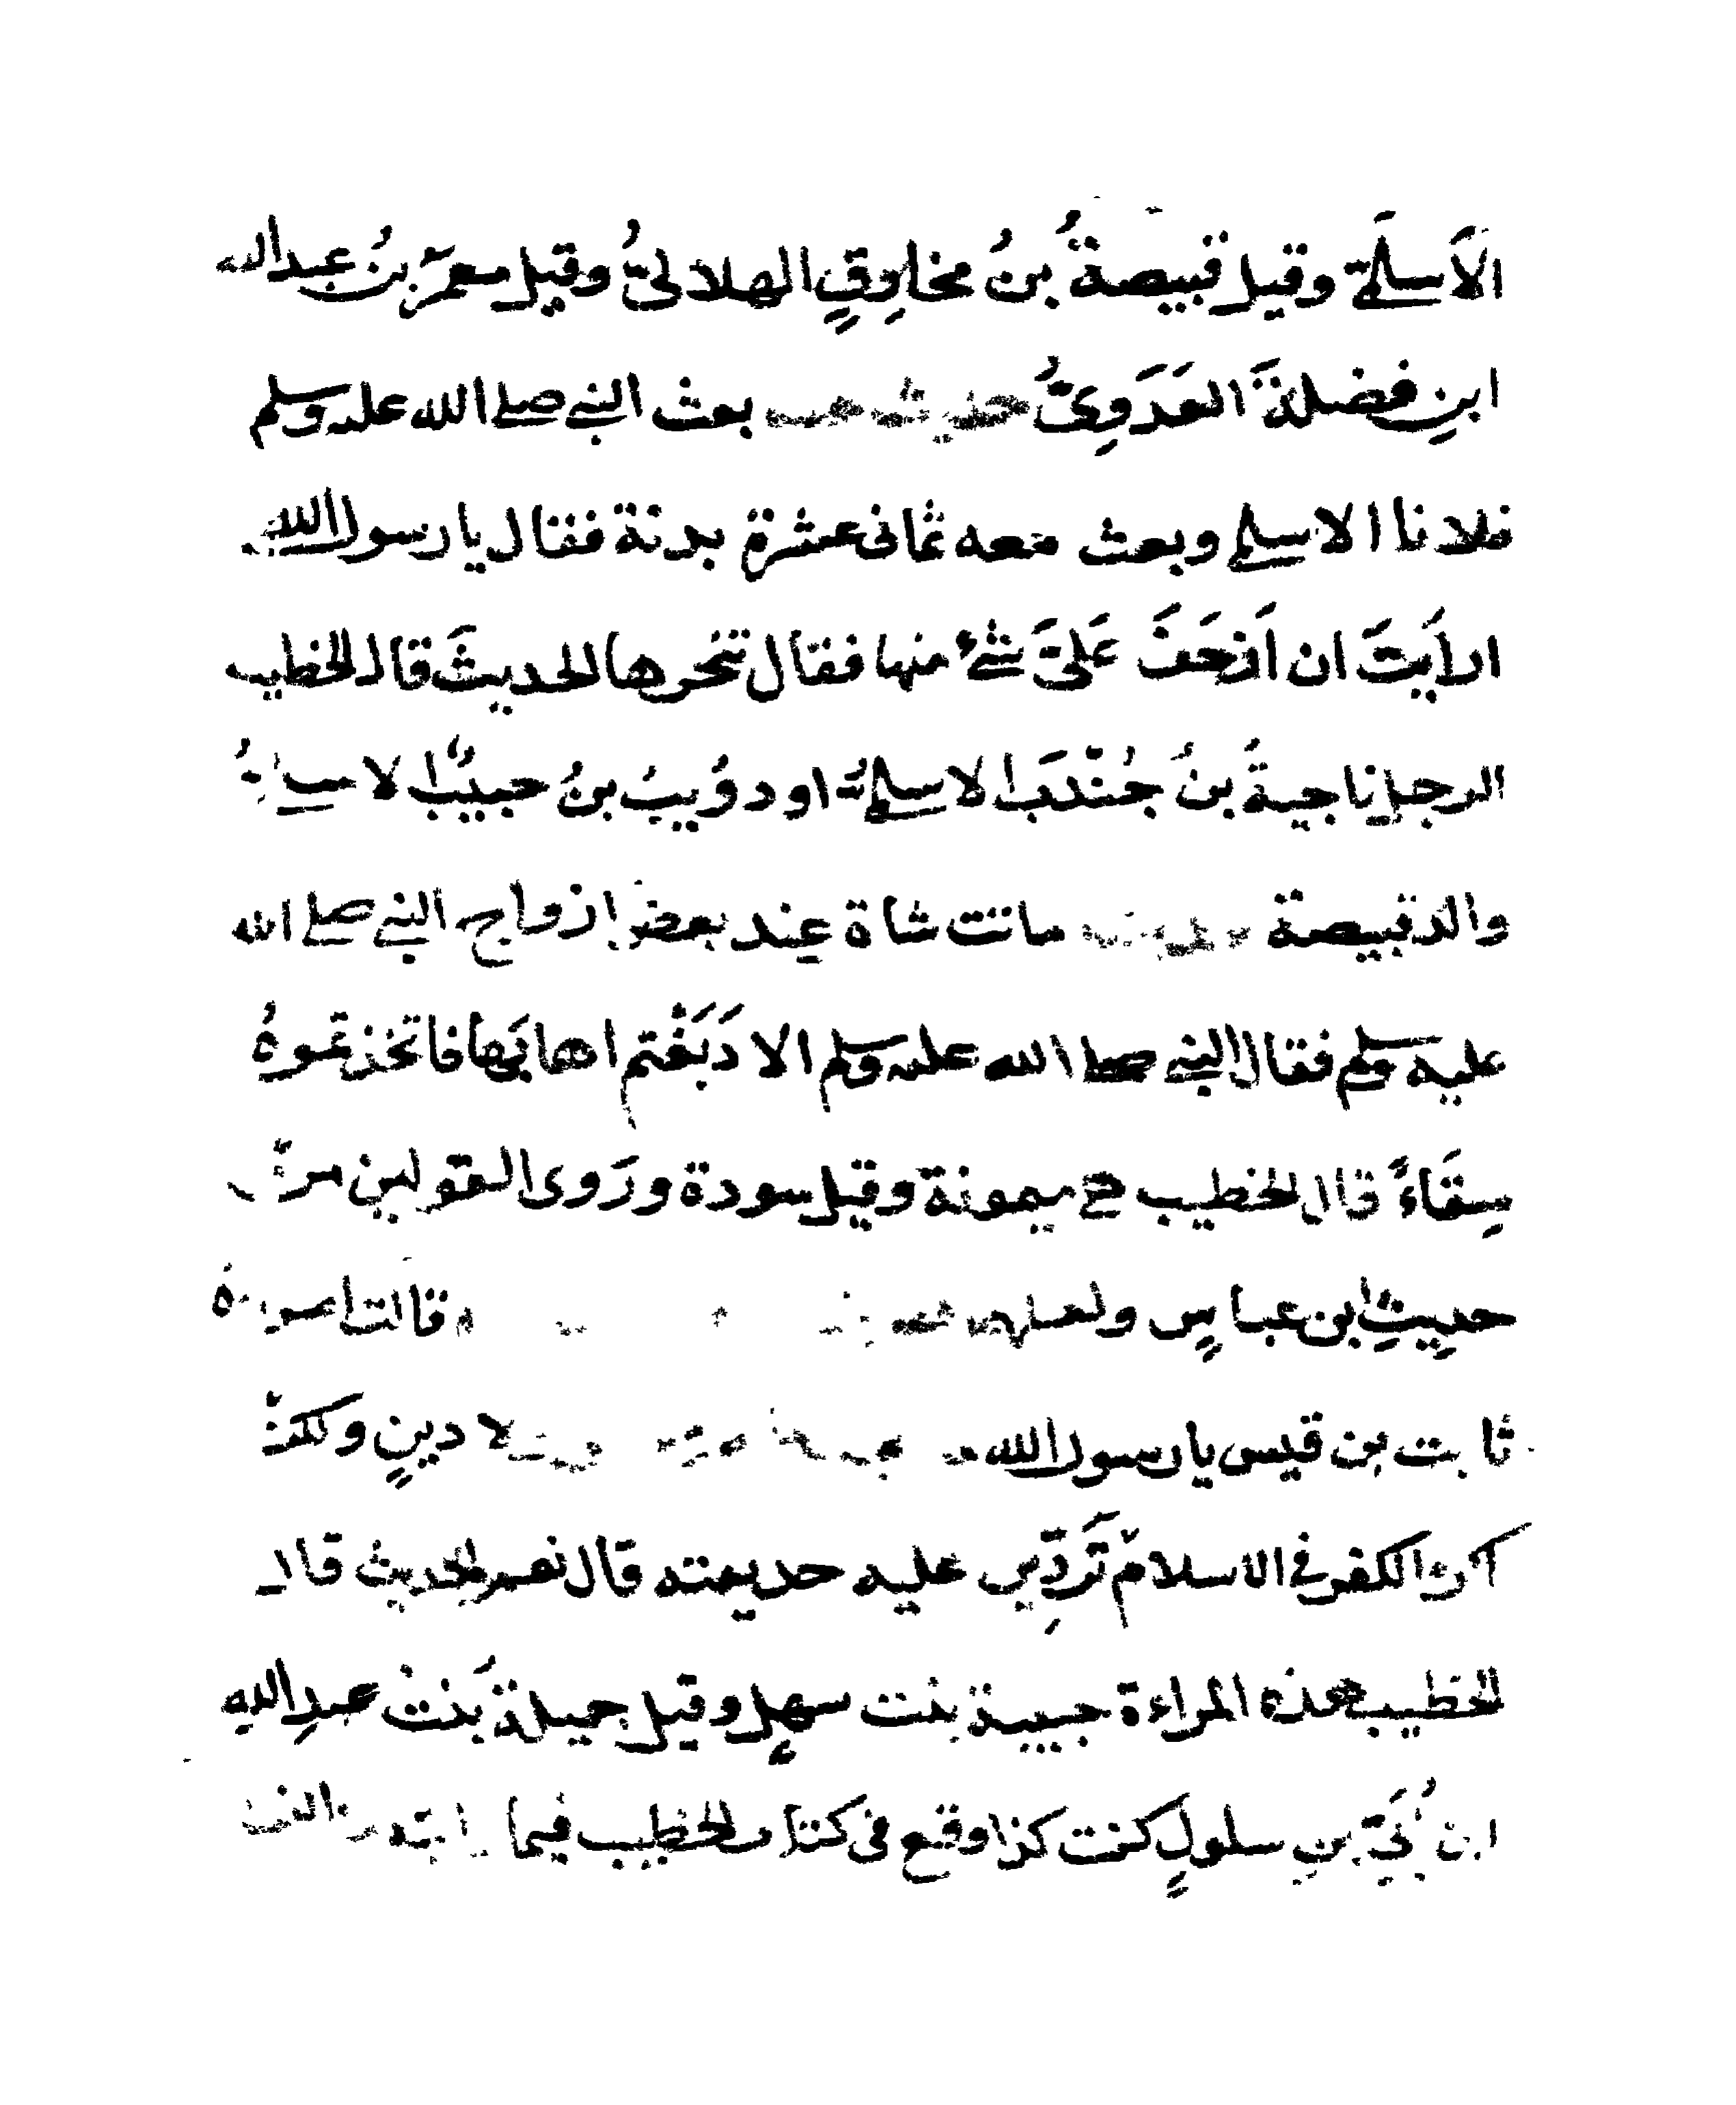 الأَسلَمي وقيل قبيصةُ بنُ مخارِقٍ الهلاليُّ وقيل معمرُ بنُ عبدالله
ابنِ فضلةَ العَدَوِيُّ حديث بعث النبي صلى الله عليه وسلم
فلانا الاسلمي وبعث معه ثماني عشرة بدنة فقال يا رسول الله
ارأيتَ ان اَزحَفَ عَلَيَّ شئ منها فقال تنحرها الحديثَ قال الخطيب
الرجل ناجيةُ بنُ جُنْدَب الاسلميُّ او ذؤيبُ بنُ حبيبٌ
والد قبيصة ماتت شاة عند بعض ازواج النبي صلى الله
عليه وسلم فقال النبي صلى الله عليه وسلم الا دَبَغْتم اهابَها فاتخذتموهُ
سِقَاءً قال الخطيب هي ميمونة وقيل سودة ورَوى القولين من
حديثِ ابن عباسٍ ولعلها قالت امراة
ثابت بن قيس يا رسول الله ولا دينٍ ولكنْ
اكره الكفر في الاسلام تَرَدِّين عليه حديقته قال نعم الحديث قال
الخطيب هذه المراءة حبيبة بنت سهلٍ وقيل جميلةُ بنتُ عبدِ اللهِ
ابن أُبَيّ بنِ سلولٍ كنت كذا وقع في كتاب الخطيب فيما